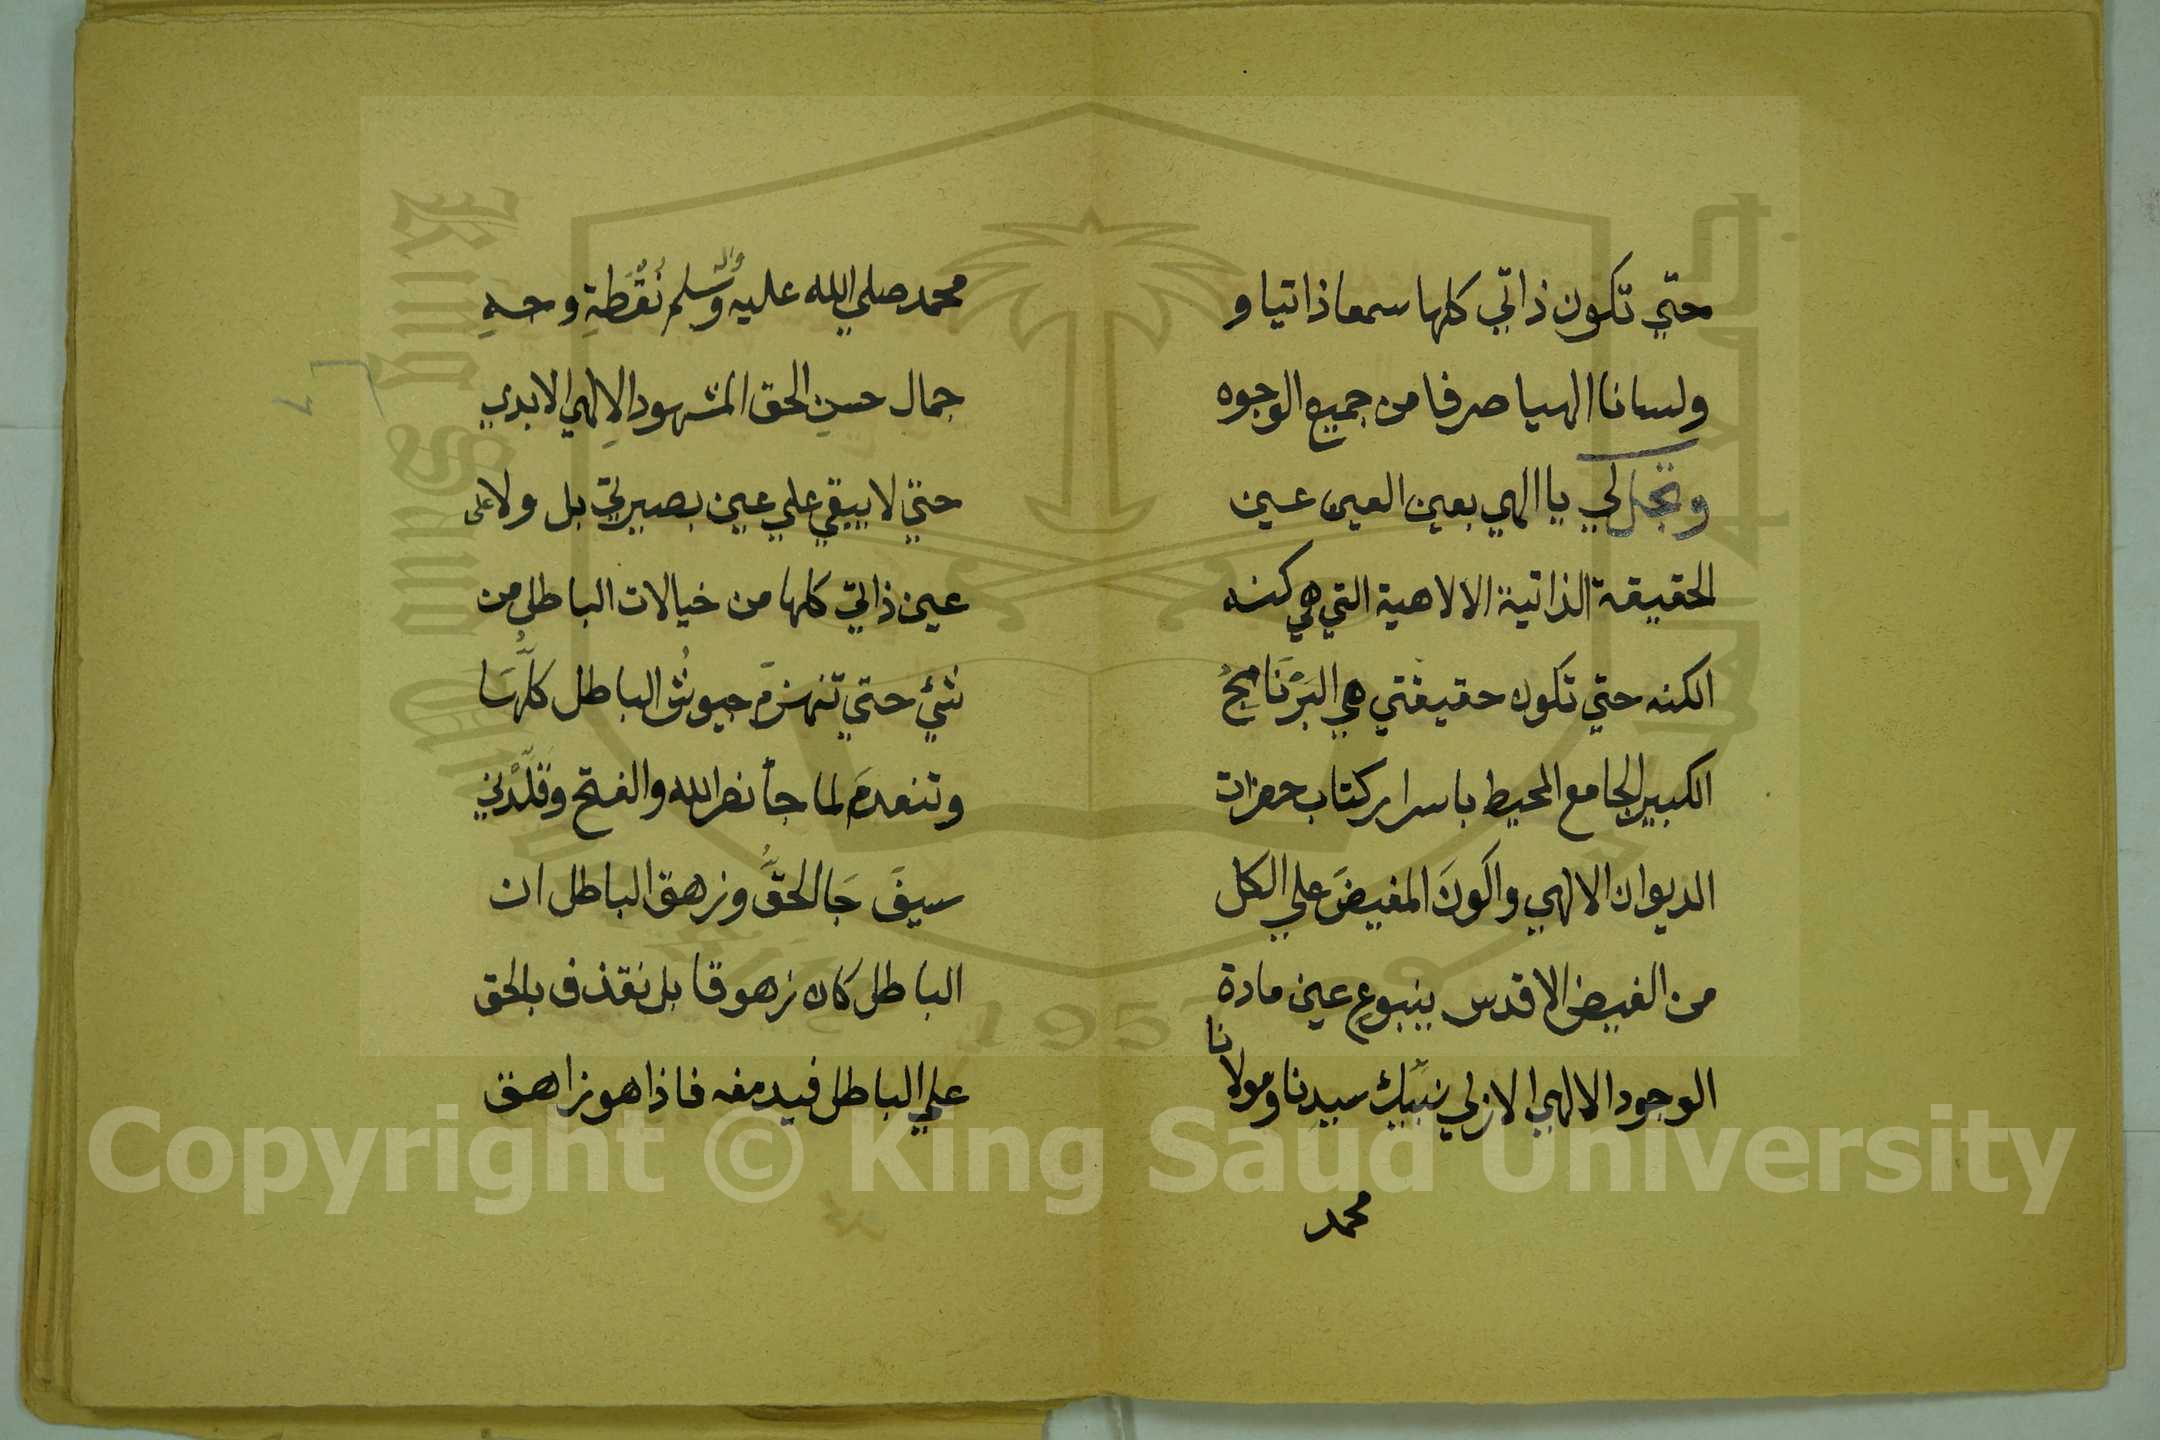 حتي تكون ذاتي كلها سمعا ذاتيا و
ولسانا الهيا صرفا من جميع الوجوه
وتجل لي يا الهي بعين العين عين
الحقيقة الذاتية الالاهية التي هي كنه
الكنه حتي تكون حقيقتي هي البَرْنَامجُ
الكبير الجامع المحيط باسرار كتاب حضرات
الديوان الالهي واكونَ المفيضَ علي الكل
من الفيض الاقدس ينبوع عين مادة
الوجود الالهي الازلي نبيّك سيدنا ومولانا
محمد
محمد صلي الله عليه واله وسلم نُقْطَةِ وحهِ
جمال حسنِ الحق المشهود الاِلهي الابدي
حتي لا يبقي علي عين بصيرتي بل ولا على
عين ذاتي كلها من خيالات الباطل من
شيء حتي تنهزمَ جيوشُ الباطل كلُّهَا
وتنعدمَ لما جأ نصر الله والفتح وقَلِّدْني
سيفَ جَا الحقُّ وزهق الباطل ان
الباطل كان زهوقا بل نقذف بالحق
علي الباطل فيدمغه فاذا هو زاهق
King Saud University
1957
Copyright © King Saud University